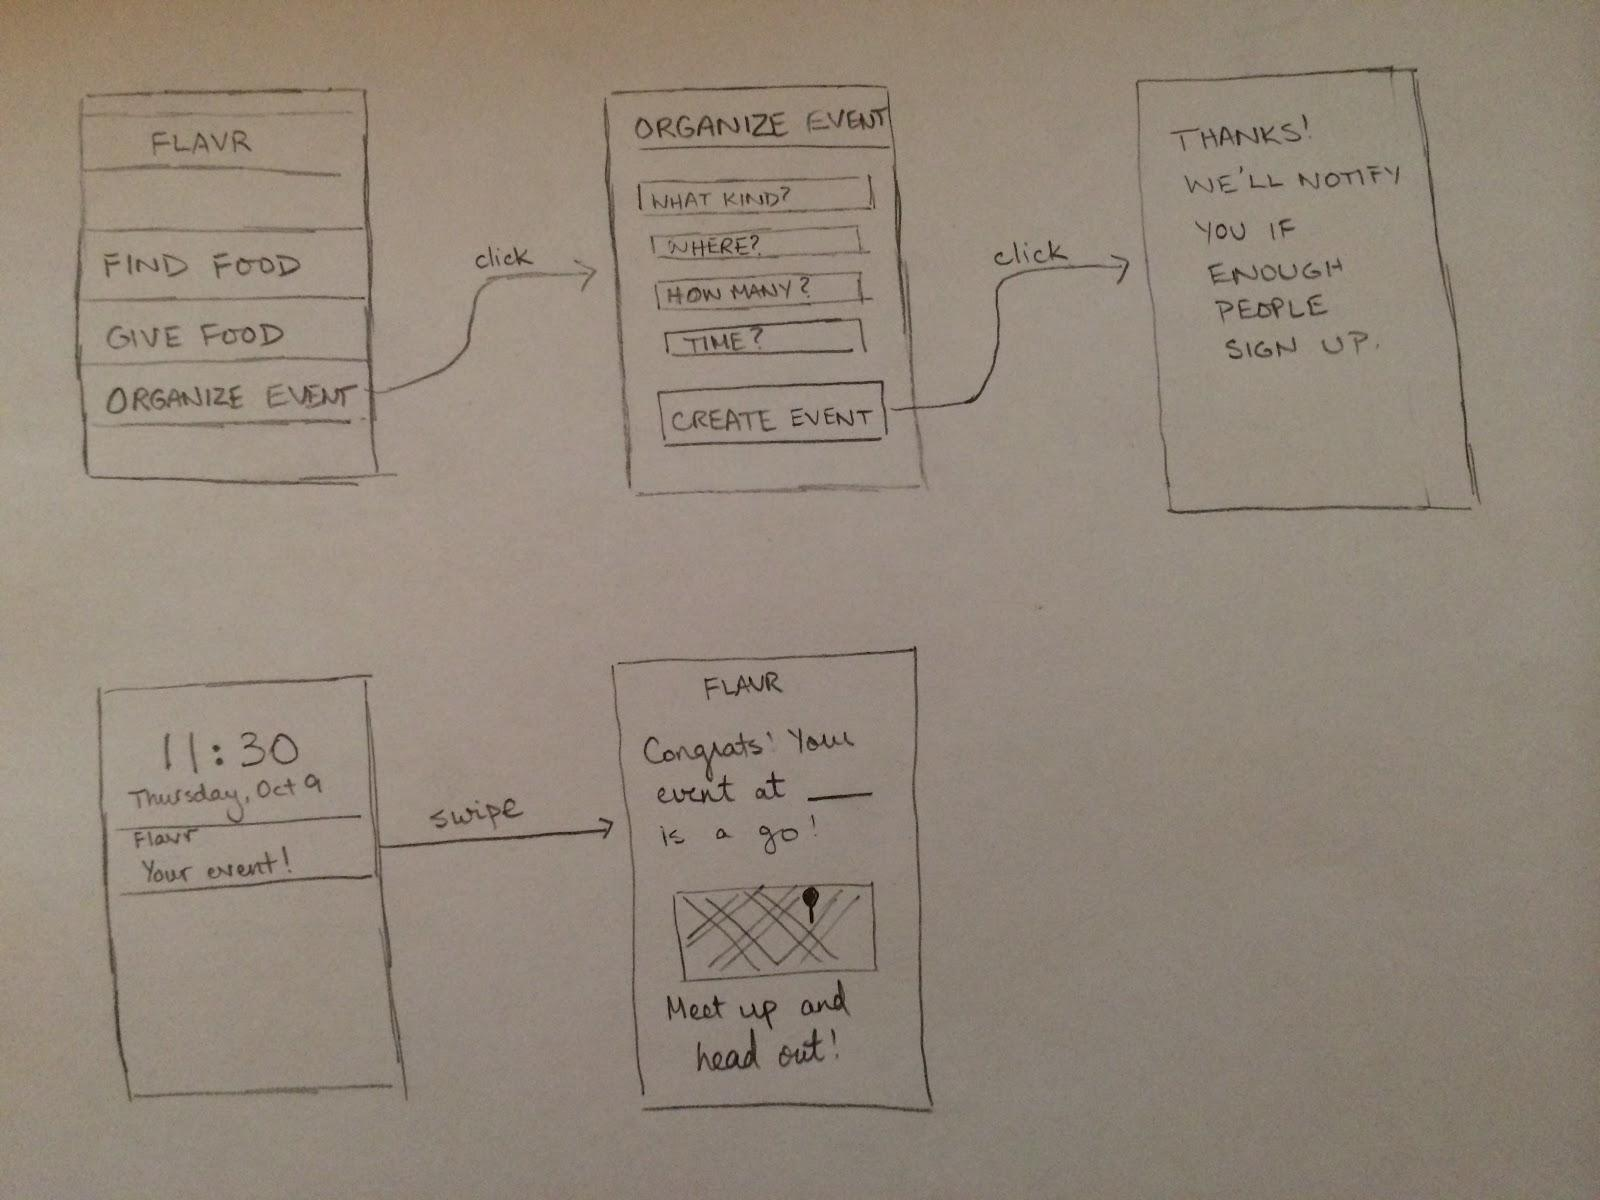 FLAVR
FIND FOOD
GIVE FOOD
ORGANIZE EVENT
click
ORGANIZE EVENT
WHAT KIND?
WHERE?
HOW MANY?
TIME?
CREATE EVENT
click
THANKS!
WE'LL NOTIFY
YOU IF
ENOUGH
PEOPLE
SIGN UP.
11:30
Thursday, Oct 9
Flavr
Your event!
swipe
FLAVR
Congrats! Your
event at ___
is a go!
Meet up and
head out!